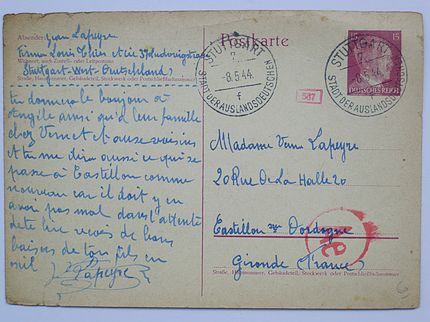 Absender: Jean Lapeyre
Firma Louis
Wohnort, auch Zustell- oder Leitpostamt
Stuttgart-West-Deutschland
Straße, Hausnummer, Gebäudeteil, Stockwerk oder Postschließfachnummer
tu donneras le bonjour à
ainsi qu'à leur famille
chez Vernet et aux voisins
et tu me diras aussi ce qui se
passe à Castillon comme
nouveau car il doit y en
avoir pas mal dans l'attente
de te lire reçois de bons
baisers de ton fils en
exil
J. Lapeyre
Postkarte
STUTTGART
8.5.44.
STADT DER AUSLANDSDEUTSCHEN
f
STUTTGART
8.5.44
STADT DER AUSLANDSDEUTSCHEN
15
DEUTSCHES REICH
587
Madame Veuve Lapeyre
20 Rue De La Halle 20
Castillon sur Dordogne
Gironde France
Straße, Hausnummer, Gebäudeteil, Stockwerk oder Postschließfachnummer